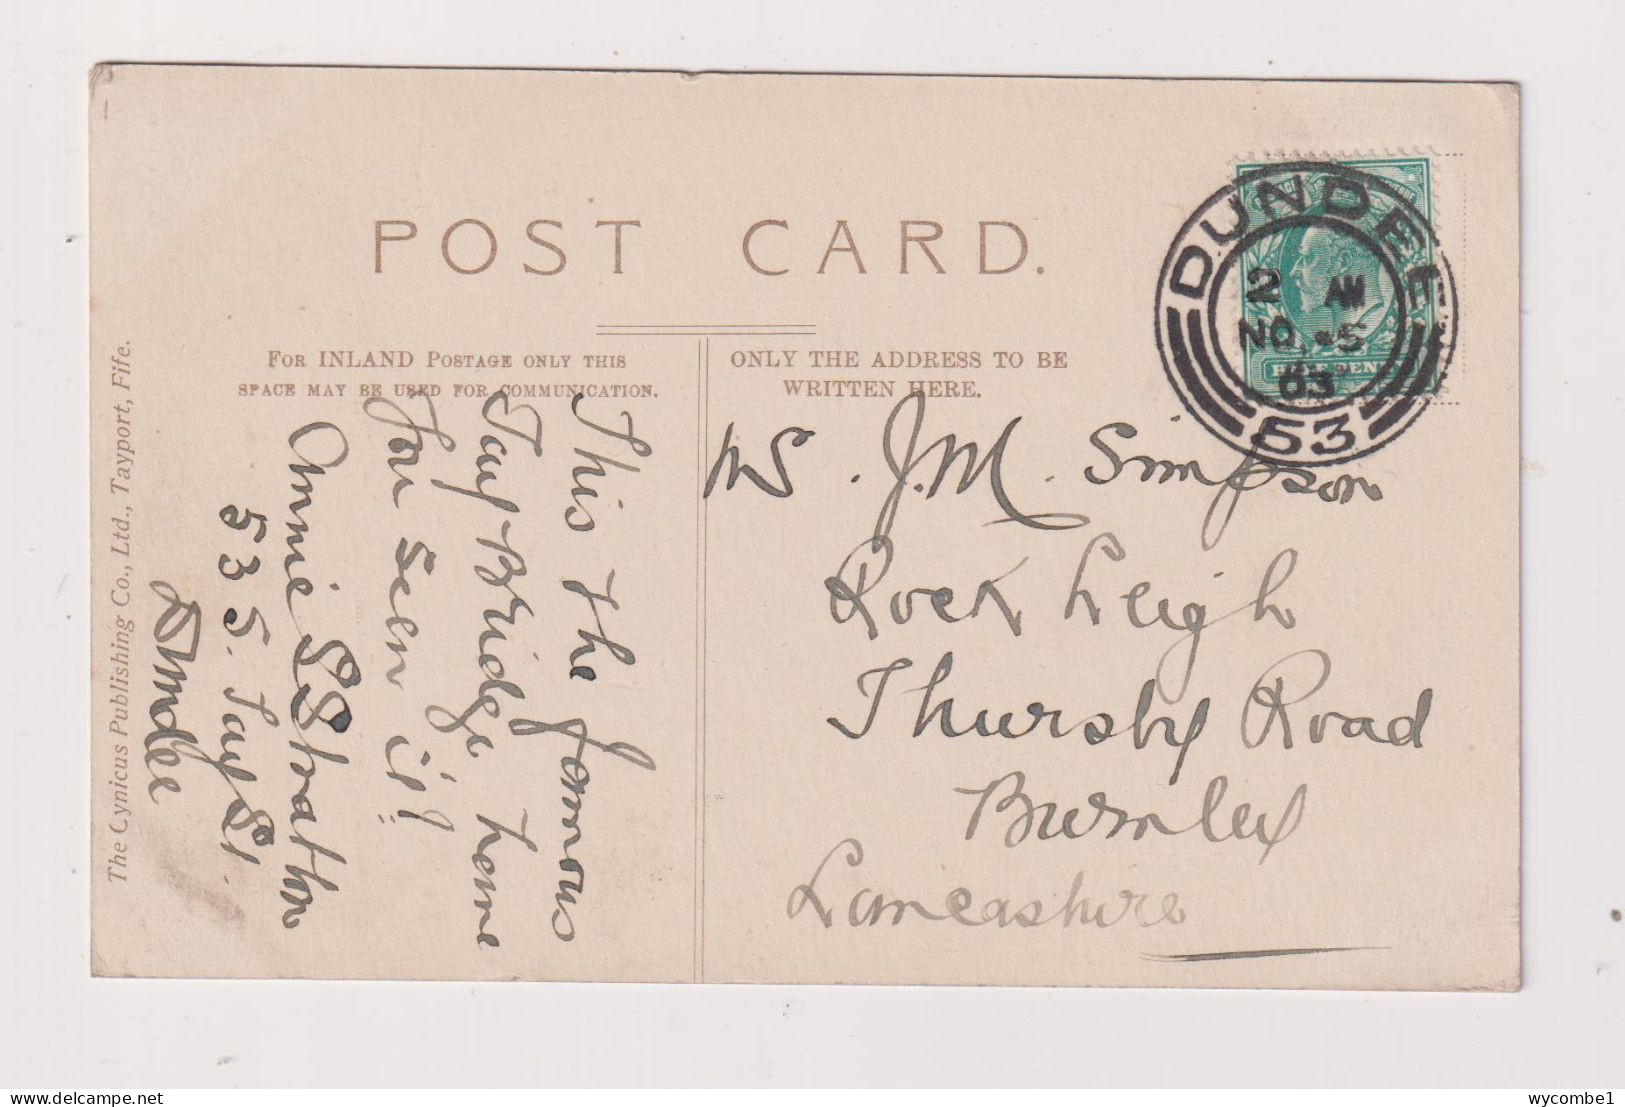 POST CARD.
FOR INLAND POSTAGE ONLY THIS
SPACE MAY BE USED FOR COMMUNICATION.
ONLY THE ADDRESS TO BE
WRITTEN HERE.
DUNDEE
2 AM
NO. 5
03
53
HALFPENNY
J. M. Simpson
Rock Leigh
Thursby Road
Burnley
Lancashire
This the famous
Tay Bridge have
You seen it?
Annie S Stratton
535. Tay St.
Dundee
The Cynicus Publishing Co., Ltd., Tayport, Fife.
wycombe1